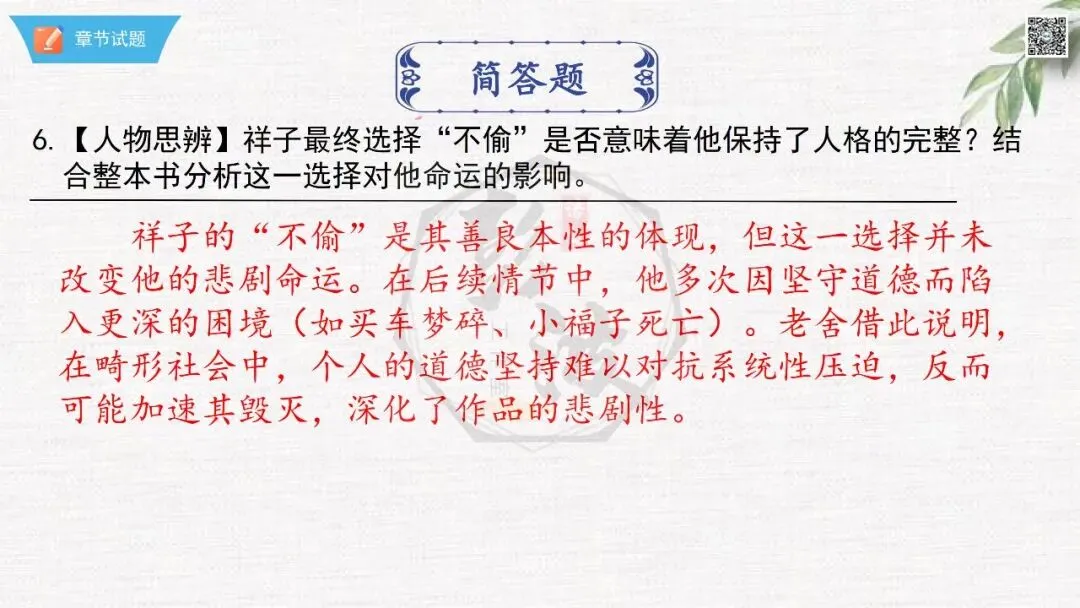 章节试题
简答题
6.【人物思辨】祥子最终选择“不偷”是否意味着他保持了人格的完整？结
合整本书分析这一选择对他命运的影响。
祥子的“不偷”是其善良本性的体现，但这一选择并未
改变他的悲剧命运。在后续情节中，他多次因坚守道德而陷
入更深的困境（如买车梦碎、小福子死亡）。老舍借此说明，
在畸形社会中，个人的道德坚持难以对抗系统性压迫，反而
可能加速其毁灭，深化了作品的悲剧性。